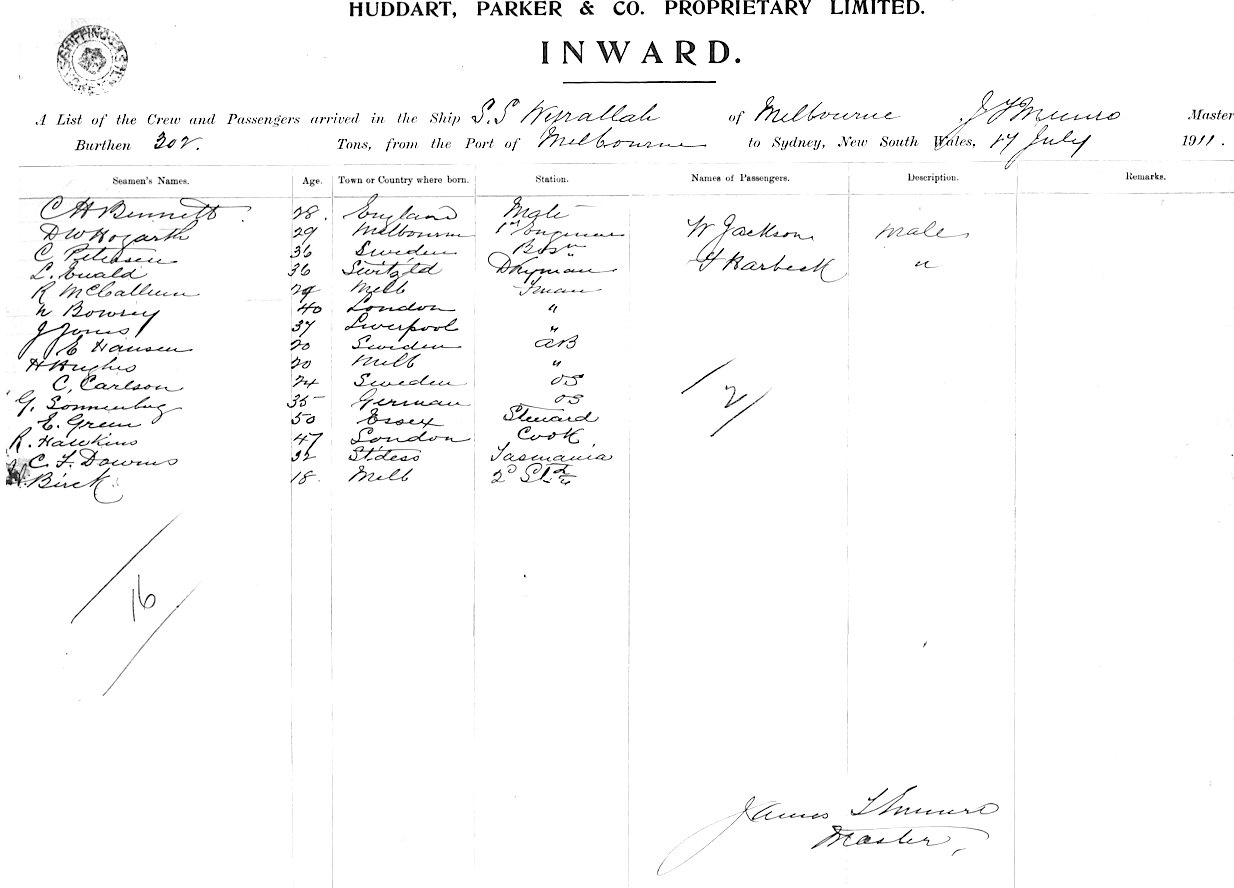 HUDDART, PARKER & CO. PROPRIETARY LIMITED.
INWARD.
A List of the Crew and Passengers arrived in the Ship S.S Wyrallah of Melbourne J F Munro Master
Burthen 302. Tons, from the Port of Melbourne to Sydney, New South Wales, 17 July 1911.
Seamen's Names. Age. Town or Country where born. Station. Names of Passengers. Description. Remarks.
C H Bennett 28. England Mate
D W Hogarth 29 Melbourne 1st Engineer W Jackson Male
C Petersen 36 Sweden Bosn
L. Ewald 36 Switzld Dkyman Karbeck "
R McCallum 29 Melb Fman
Bowrey 40 London "
J Jones 37 Liverpool "
E Hansen 20 Sweden AB
H Hughes 20 Melb "
C. Carlson 24 Sweden OS
G. Sonnenbug 35 German OS
E. Green 50 Essex Steward
R. Hawkins 47 London Cook
C. F. Downs 32 Stdess Tasmania
Birck 18. Melb 2d Std
2
16
James F Munro
Master,